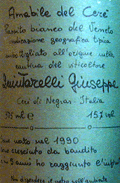 Amabile del Cerè
bianco del Veneto
indicazione geografica tipica
all'origine nella
cantina del viticoltore
Quintarelli Giuseppe
Cerè di Negrar Italia
375 ml e 15% vol
nato nel 1990
cresciuto da bandito
ha raggiunto l'